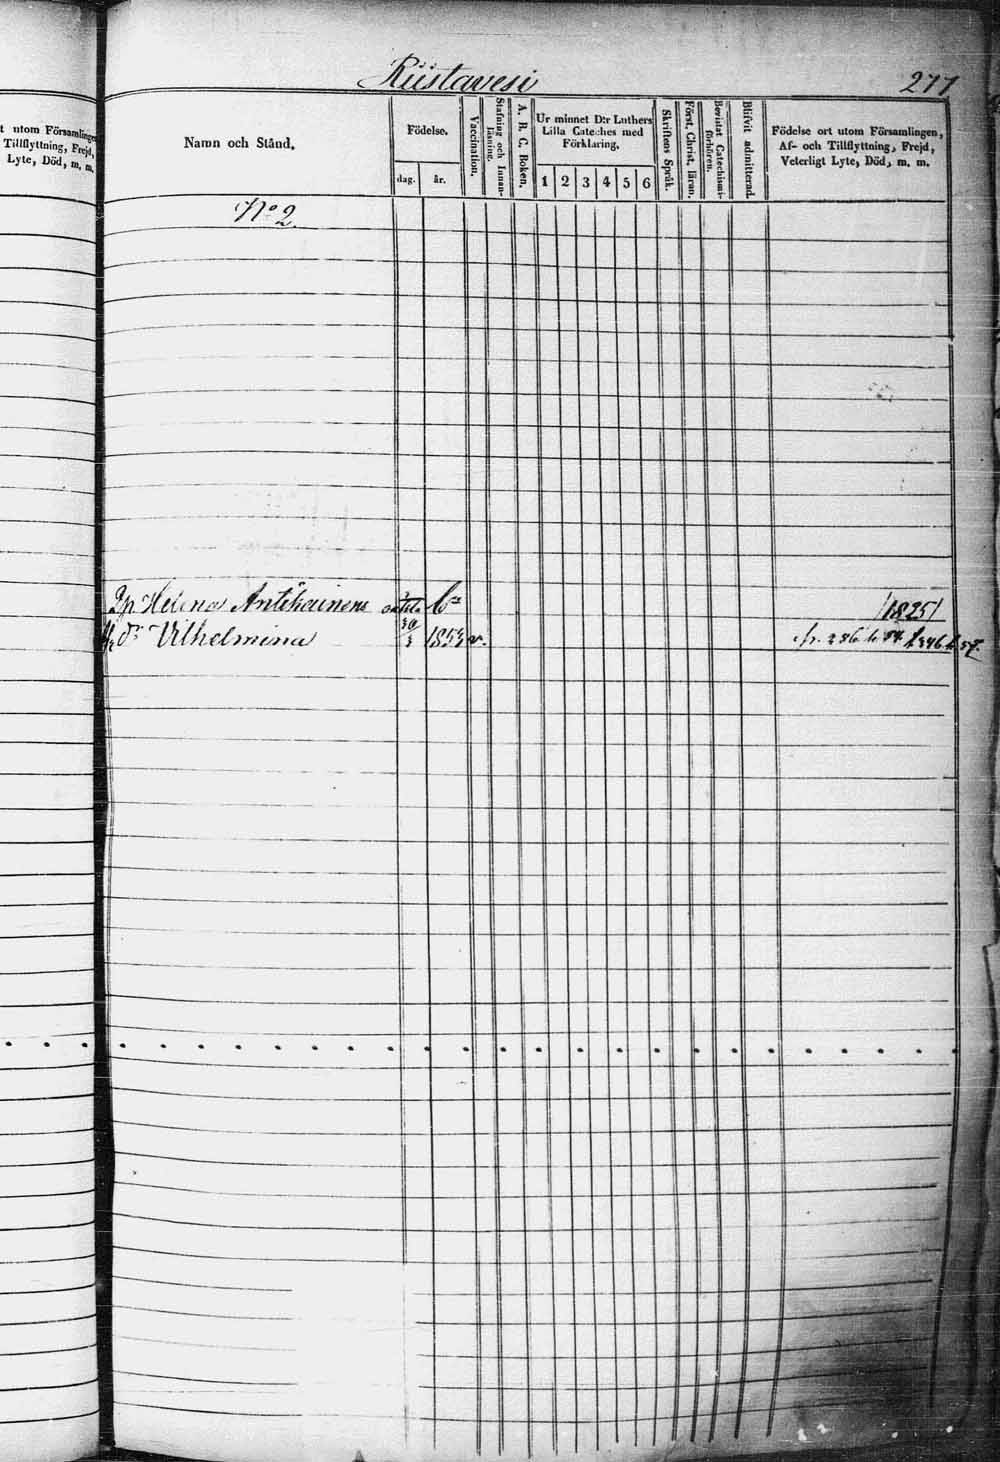 Riistavesi 277
t utom Församlingen
Tillflyttning, Frejd,
Lyte, Död, m. m.
Namn och Stånd.
Födelse.
dag. år.
Vaccination.
Stafning och Innan-
läsning.
A. B. C. Boken.
Ur minnet D:r Luthers
Lilla Cateches med
Förklaring.
1 2 3 4 5 6
Skriftens Språk.
Först. Christ. läran.
Bevistat Catechismi-
förhören.
Blifvit admitterad.
Födelse ort utom Församlingen,
Af- och Tillflyttning, Frejd,
Veterligt Lyte, Död, m. m.
No 2.
Helena Antikainen /1825/
Vilhelmina 30/3 1853 v. fr. 236 54 f. 346 57.